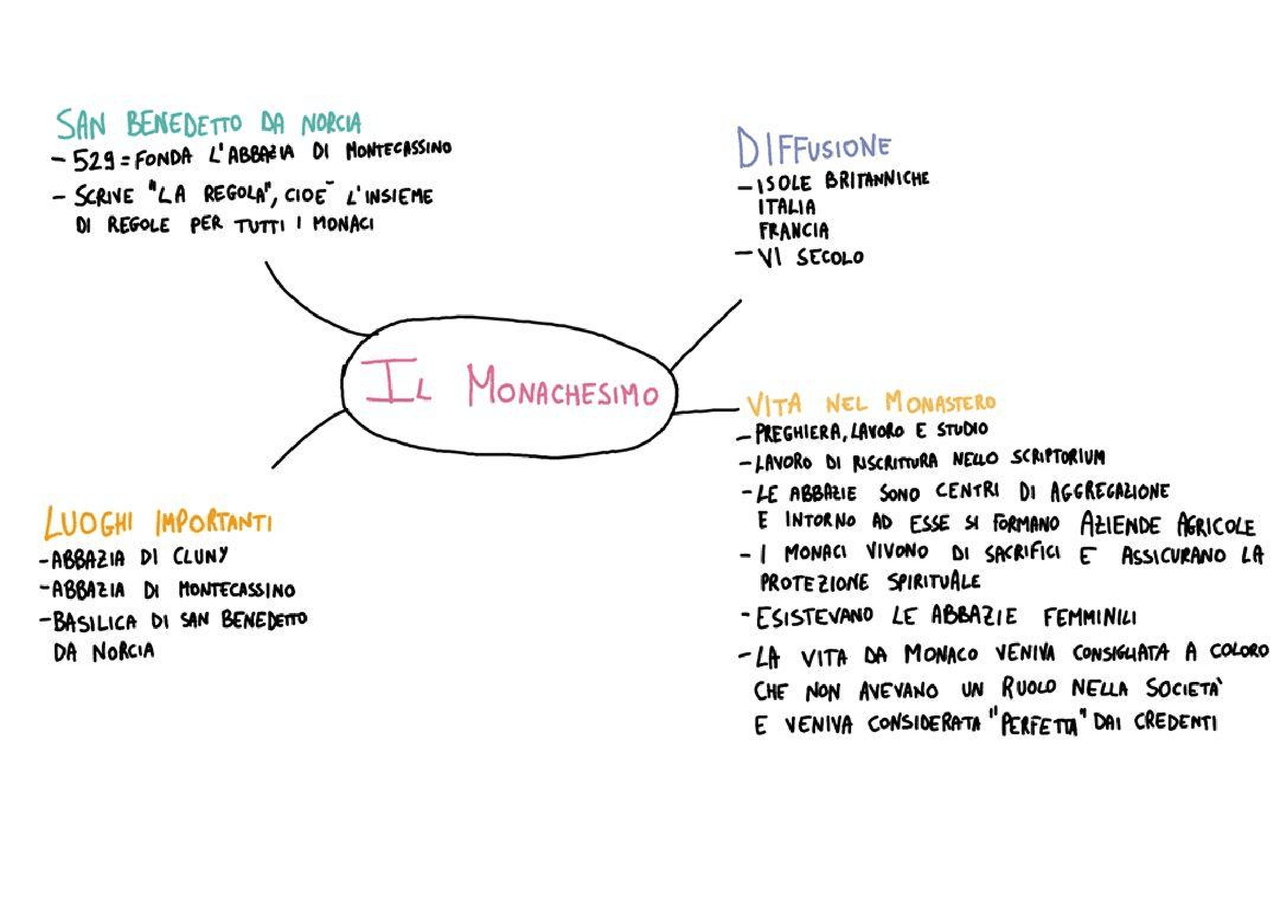 SAN BENEDETTO DA NORCIA
- 529 = FONDA L'ABBAZIA DI MONTECASSINO
- SCRIVE "LA REGOLA", CIOÈ L'INSIEME
DI REGOLE PER TUTTI I MONACI
DIFFUSIONE
- ISOLE BRITANNICHE
ITALIA
FRANCIA
- VI SECOLO
IL MONACHESIMO
VITA NEL MONASTERO
- PREGHIERA, LAVORO E STUDIO
- LAVORO DI RISCRITTURA NELLO SCRIPTORIUM
- LE ABBAZIE SONO CENTRI DI AGGREGAZIONE
E INTORNO AD ESSE SI FORMANO AZIENDE AGRICOLE
- I MONACI VIVONO DI SACRIFICI E ASSICURANO LA
PROTEZIONE SPIRITUALE
- ESISTEVANO LE ABBAZIE FEMMINILI
- LA VITA DA MONACO VENIVA CONSIGLIATA A COLORO
CHE NON AVEVANO UN RUOLO NELLA SOCIETÀ
E VENIVA CONSIDERATA "PERFETTA" DAI CREDENTI
LUOGHI IMPORTANTI
- ABBAZIA DI CLUNY
- ABBAZIA DI MONTECASSINO
- BASILICA DI SAN BENEDETTO
DA NORCIA